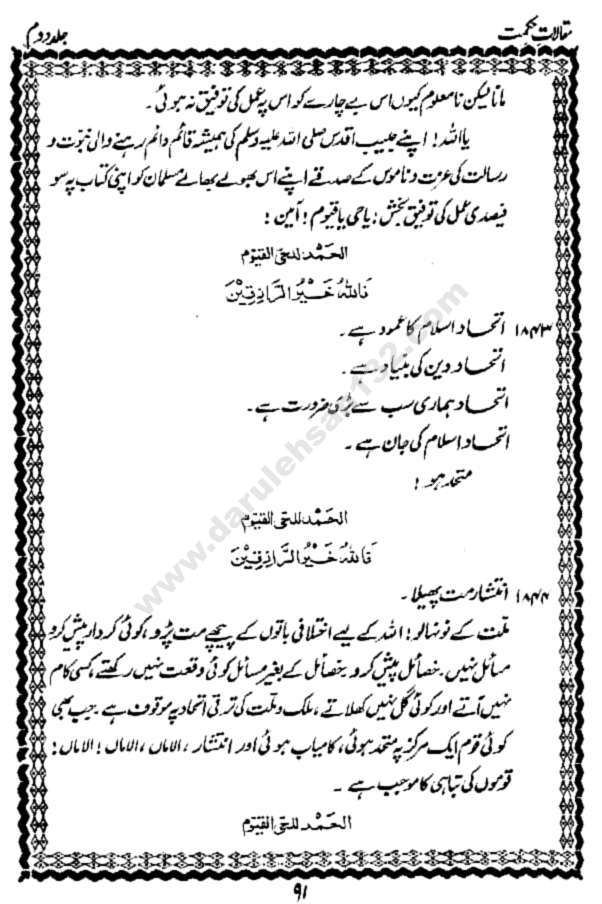 مقالاتِ حکمت
جلد دوم
مانا لیکن نا معلوم کیوں اس بے چارے کو اس پہ عمل کی توفیق نہ ہوئی۔
یا اللہ! اپنے حبیب اقدس صلی اللہ علیہ وسلم کی ہمیشہ قائم دائم رہنے والی نبوّت و
رسالت کی عزت و ناموس کے صدقے اپنے اس بھولے بھالے مسلمان کو اپنی کتاب پہ سو
فیصدی عمل کی توفیق بخش: یا حی یا قیوم! آمین:
الحمد للحی القیوم
فاللہُ خَیْرُ الرَّازِقِیْنَ
۱۸۴۳ اتحاد اسلام کا عمود ہے۔
اتحاد دین کی بنیاد ہے۔
اتحاد ہماری سب سے بڑی ضرورت ہے۔
اتحاد اسلام کی جان ہے۔
متحد ہو!
الحمد للحی القیوم
فَاللہُ خَیْرُ الرَّازِقِیْنَ
۱۸۴۴ انتشار مت پھیلا۔
ملّت کے نونہالو! اللہ کے لیے اختلافی باتوں کے پیچھے مت پڑو، کوئی کردار پیش کرو
مسائل نہیں خصائل پیش کرو۔ خصائل کے بغیر مسائل کوئی وقعت نہیں رکھتے، کسی کام
نہیں آتے اور کوئی گل نہیں کھلاتے، ملک و ملّت کی ترقی اتحاد پہ موقوف ہے۔ جب بھی
کوئی قوم ایک مرکز پہ متحد ہوئی، کامیاب ہوئی اور انتشار، الاماں، الاماں! الاماں!
قوموں کی تباہی کا موجب ہے۔
الحمد للحی القیوم
۹۱
www.darulehsan132.com